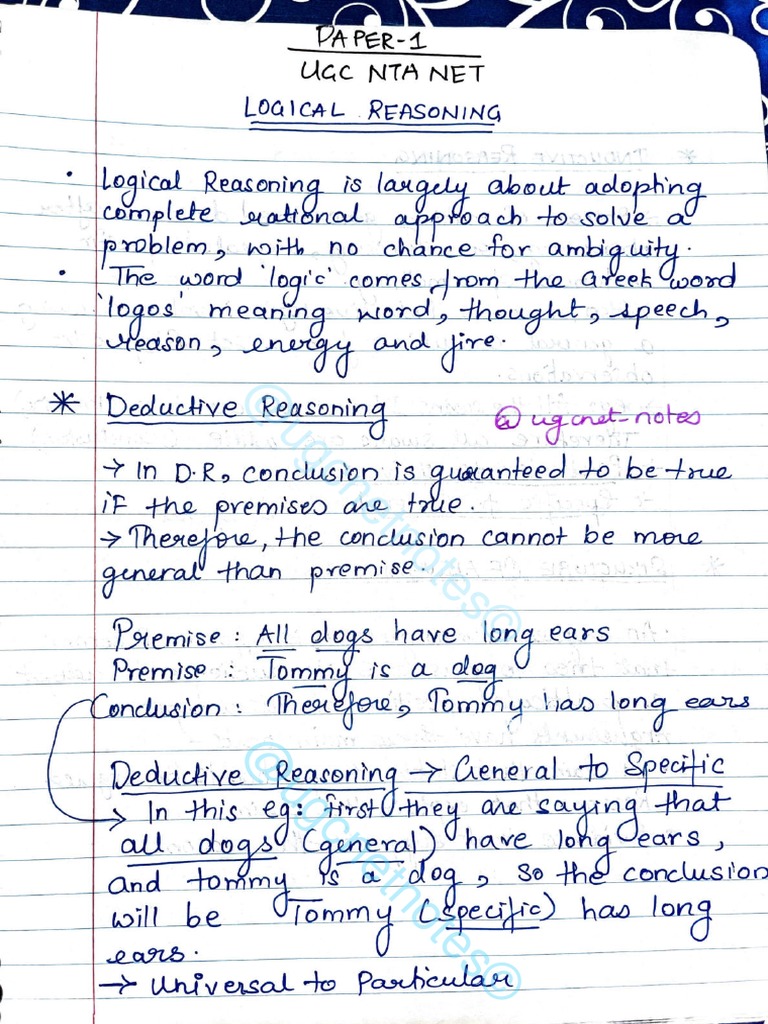 PAPER-1
UGC NTA NET
LOGICAL REASONING
• Logical Reasoning is largely about adopting
complete rational approach to solve a
problem, with no chance for ambiguity.
• The word 'logic' comes from the Greek word
'logos' meaning word, thought, speech,
reason, energy and fire.
* Deductive Reasoning
@ugcnet_notes
→ In D.R, conclusion is guaranteed to be true
if the premises are true.
→ Therefore, the conclusion cannot be more
general than premise.
Premise : All dogs have long ears
Premise : Tommy is a dog
Conclusion : Therefore, Tommy has long ears
Deductive Reasoning → General to Specific
→ In this eg: first they are saying that
all dogs (general) have long ears,
and tommy is a dog, so the conclusion
will be Tommy (specific) has long
ears.
→ Universal to Particular
@ugcnetnotes@
@ugcnetnotes@